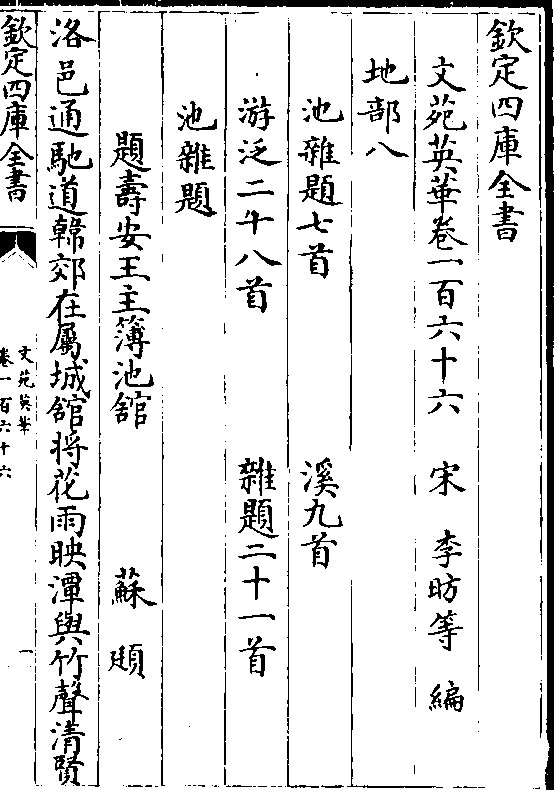 欽定四庫全書
文苑英華卷一百六十六　宋　李昉等　編
地部八
池雜題七首　溪九首
游泛二十八首　雜題二十一首
池雜題
題壽安王主簿池舘　蘇頲
洛邑通馳道韓郊在屬城舘将花雨映潭與竹聲清賢
欽定四庫全書
文苑英華
卷一百六十六
一